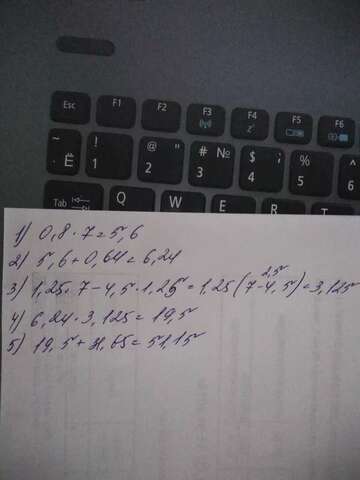 Esc F1 F2 F3 F4 F5 F6
~ ! @ " # № $ ; %
Ё 1 2 3 4 5
Tab Q W E R
1) 0,8 · 7 = 5,6
2) 5,6 + 0,64 = 6,24
2,5
3) 1,25 · 7 - 4,5 · 1,25 = 1,25 (7 - 4,5) = 3,125
4) 6,24 · 3,125 = 19,5
5) 19,5 + 31,65 = 51,15